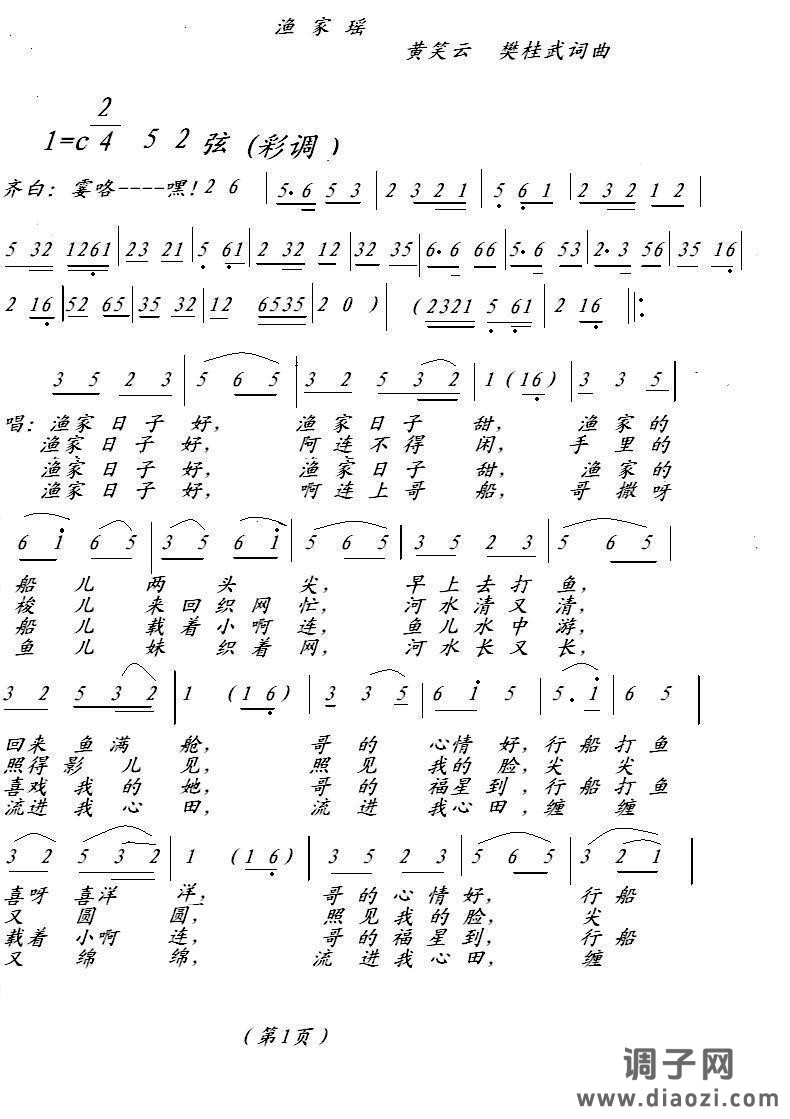 渔家瑶
黄笑云 樊桂武词曲
1=c 2/4 5 2 弦 (彩调)
齐白: 霎咯----嘿! 2 6 | 5. 6 5 3 | 2 3 2 1 | 5 6 1 | 2 3 2 | 1 2
5 32 1261 | 23 21 | 5 61 | 2 32 12 | 32 35 | 6. 6 66 | 5. 6 53 | 2. 3 56 | 35 16 |
2 16 | 52 65 | 35 32 | 12 6535 | 2 0 ) | (2321 5 61 | 2 16 |:
3 5 2 3 | 5 6 5 | 3 2 5 3 2 | 1 (16) | 3 3 5 |
唱: 渔家日子好, 渔家日子甜, 渔家的
渔家日子好, 阿连不得闲, 手里的
渔家日子好, 渔家日子甜, 渔家的
渔家日子好, 啊连上哥船, 哥撒呀
6 i 6 5 | 3 5 6 i | 5 6 5 | 3 5 2 3 | 5 6 5 |
船儿两头尖, 早上去打鱼,
梭儿来回织网忙, 河水清又清,
船儿载着小啊连, 鱼儿水中游,
鱼儿妹织着网, 河水长又长,
3 2 5 3 2 | 1 (1 6) | 3 3 5 | 6 i 5 | 5. i | 6 5 |
回来鱼满舱, 哥的心情好, 行船打鱼
照得影儿见, 照见我的脸, 尖尖
喜戏我的她, 哥的福星到, 行船打鱼
流进我心田, 流进我心田, 缠缠
3 2 5 3 2 | 1 (1 6) | 3 5 2 3 | 5 6 5 | 3 2 1 |
喜呀喜洋洋, 哥的心情好, 行船
又圆圆, 照见我的脸, 尖
载着小啊连, 哥的福星到, 行船
又绵绵, 流进我心田, 缠
(第1页)
调子网
www.diaozi.com